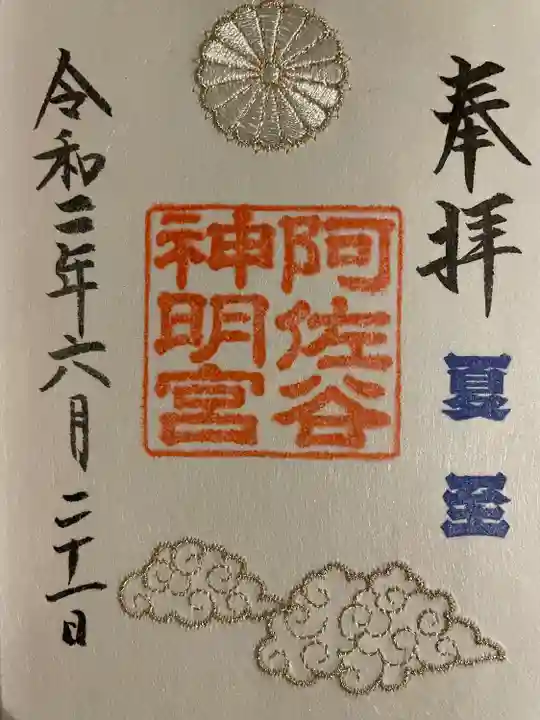 奉拝
夏至
阿佐谷
神明宮
令和二年六月二十一日